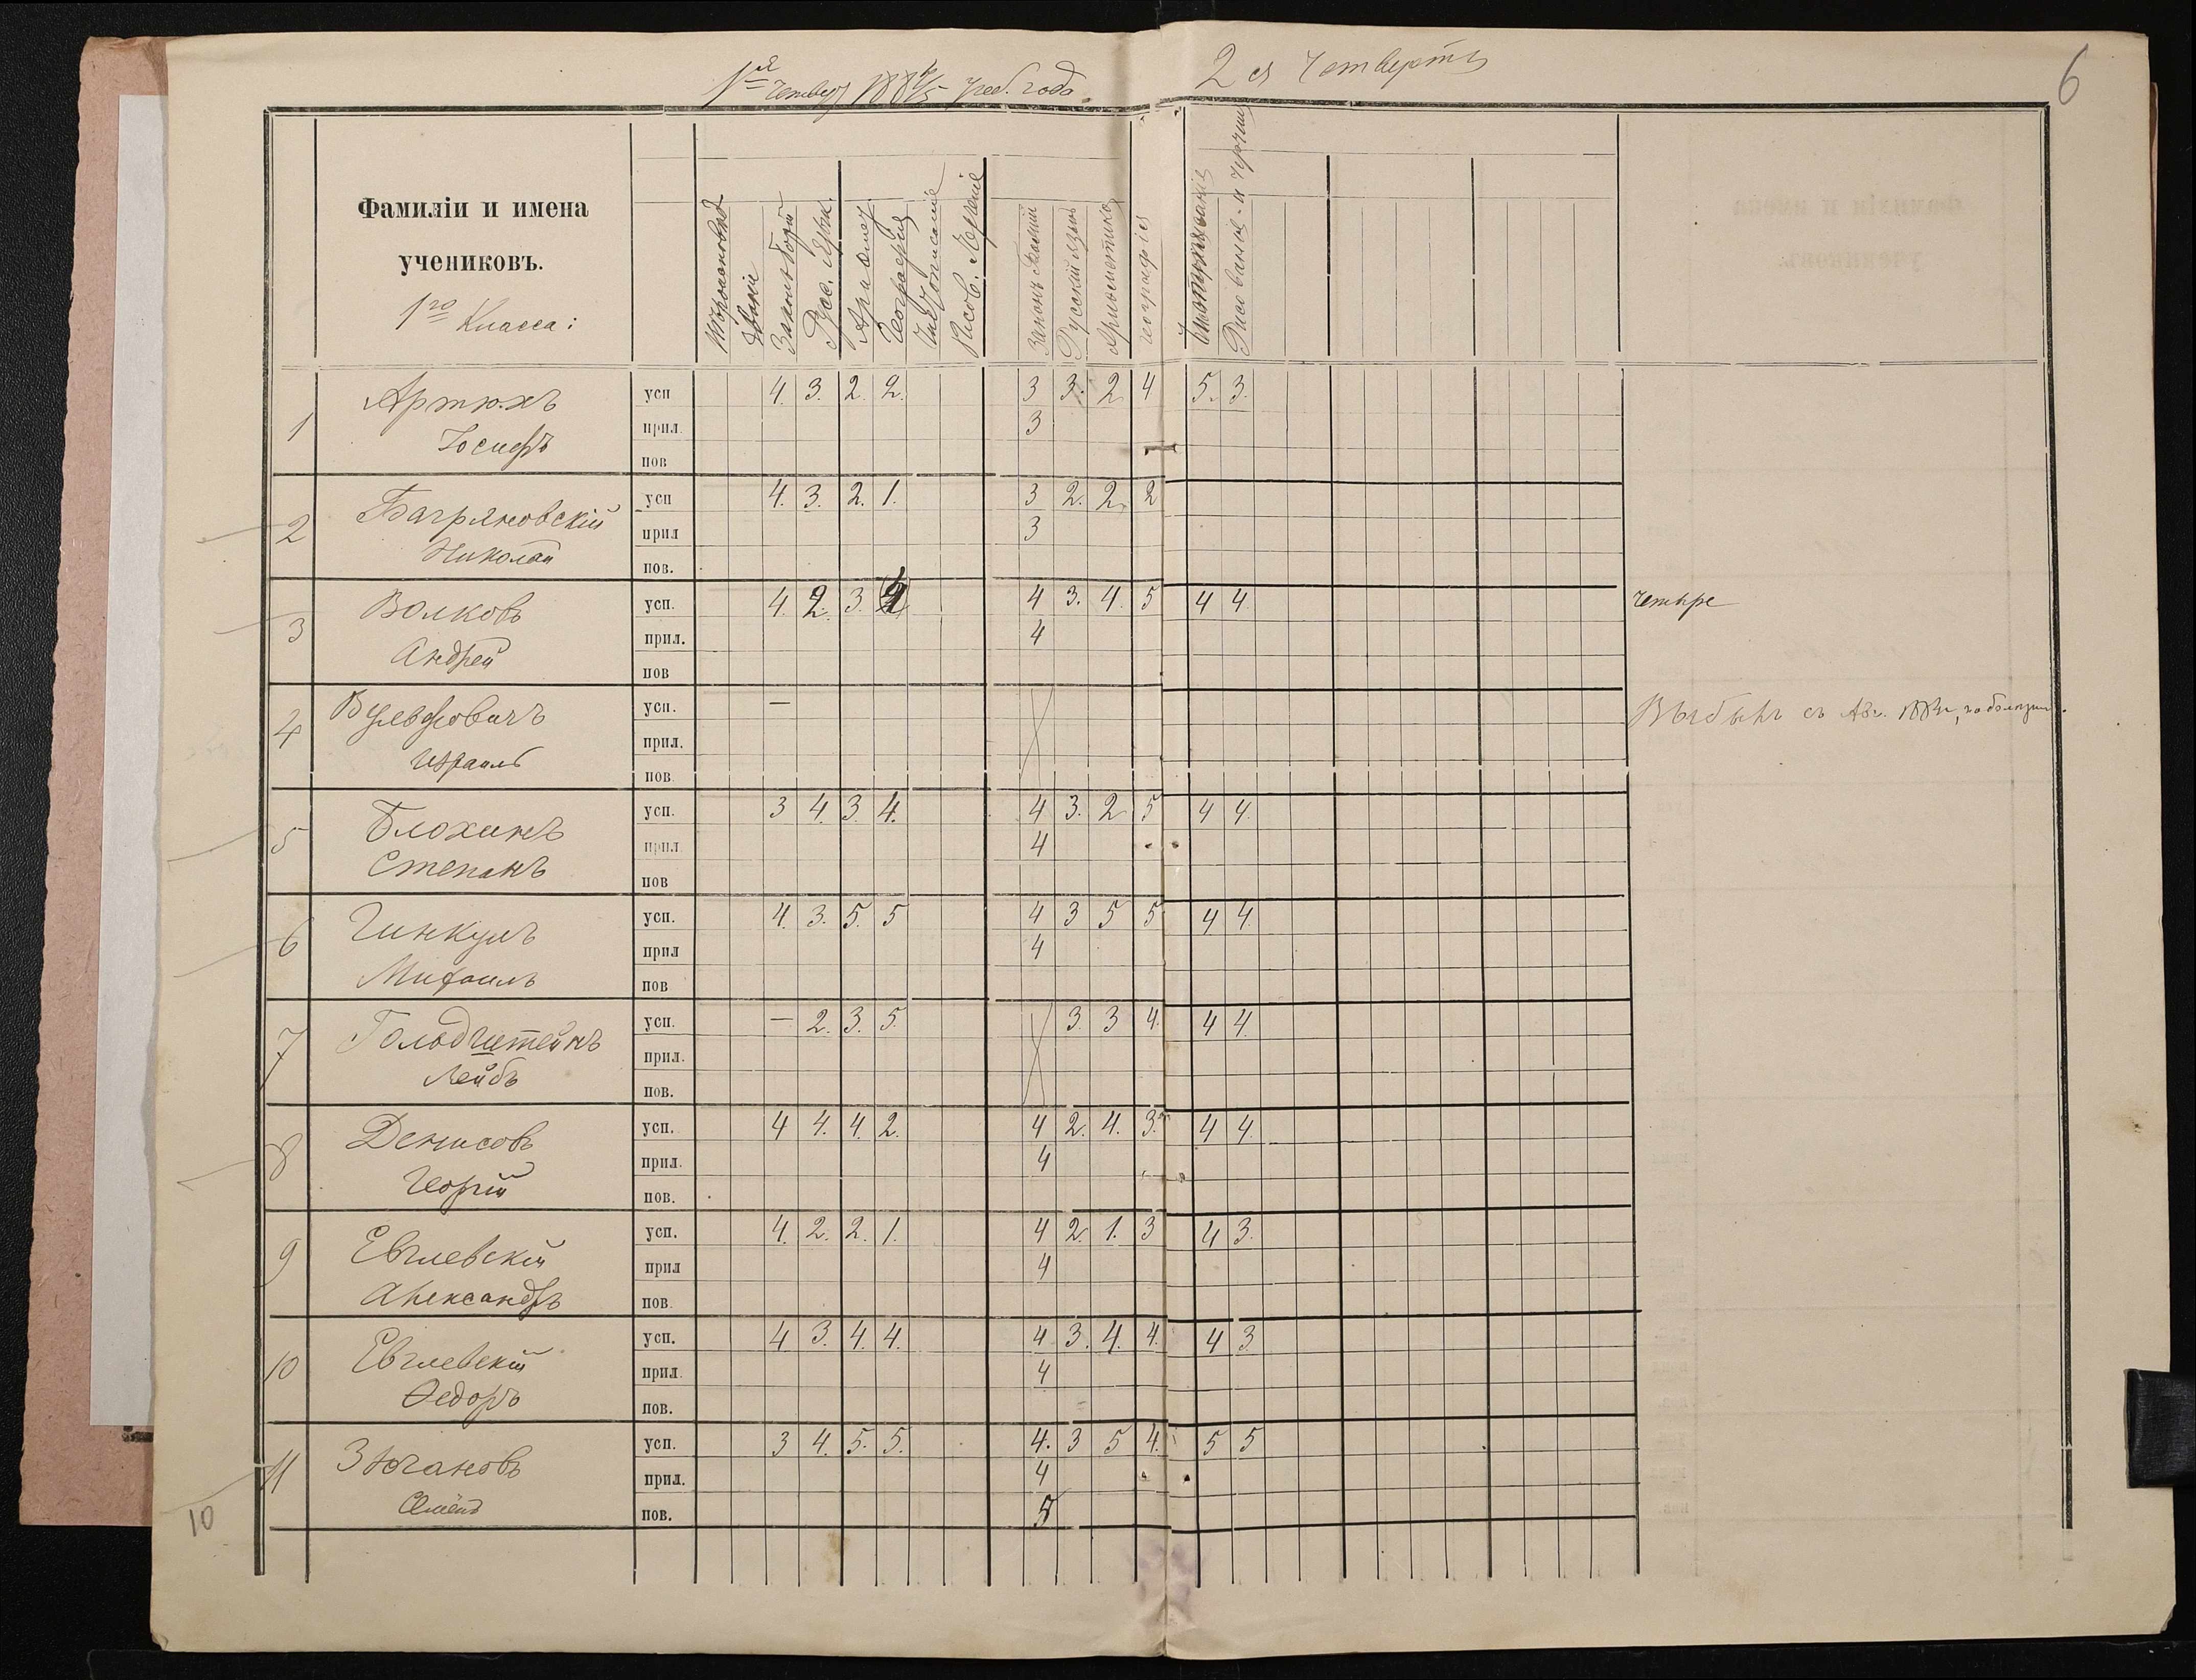 1ая четвер 1884/5 учеб. года.
2 ая четверть
6
Фамиліи и имена
учениковъ.
1го Класса:
Законъ Божій
Русс. Язык.
Географія
Чистописаніе
Рисов. Черченіе
Законъ Божій
Русскій языкъ
Ариѳметика
географія
Чистописаніе
Рисованіе и черчен
1 Артюхъ усп 4. 3. 2. 2. 3 3. 2 4 5. 3.
Іосифъ прил. 3
пов
2 Багряновскій усп 4. 3. 2. 1. 3 2. 2. 2
Николай прил 3
пов.
3 Волковъ усп. 4. 2. 3. 4 4 3. 4. 5 4 4 четыре
Андрей прил. 4
пов
4 Вульфовичъ усп. — Выбылъ съ Авг. 1884г, по болѣзни.
Израиль прил.
пов.
5 Блохинъ усп. 3 4. 3. 4. 4 3. 2 5 4 4.
Степанъ прил 4
пов
6 Гинкулъ усп. 4. 3. 5. 5 4 3 5 5 4 4.
Михаилъ прил 4
пов
7 Голодштейнъ усп. — 2. 3. 5. 3. 3 4. 4 4.
Лейбъ прил.
пов.
8 Денисовъ усп. 4 4. 4. 2. 4 2. 4. 3. 4 4.
Георгій прил. 4
пов.
9 Евглевскій усп. 4. 2. 2. 1. 4 2. 1. 3 4 3.
Александръ прил 4
пов.
10 Евглевскій усп. 4 3. 4. 4. 4 3. 4. 4. 4 3
Ѳедоръ прил. 4
пов.
11 Зюгановъ усп. 3 4. 5. 5. 4. 3 5 4. 5 5
Семёнъ прил. 4
пов. 5
10